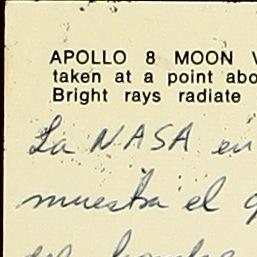 APOLLO 8 MOON V
taken at a point abo
Bright rays radiate
La NASA en
muestra el g